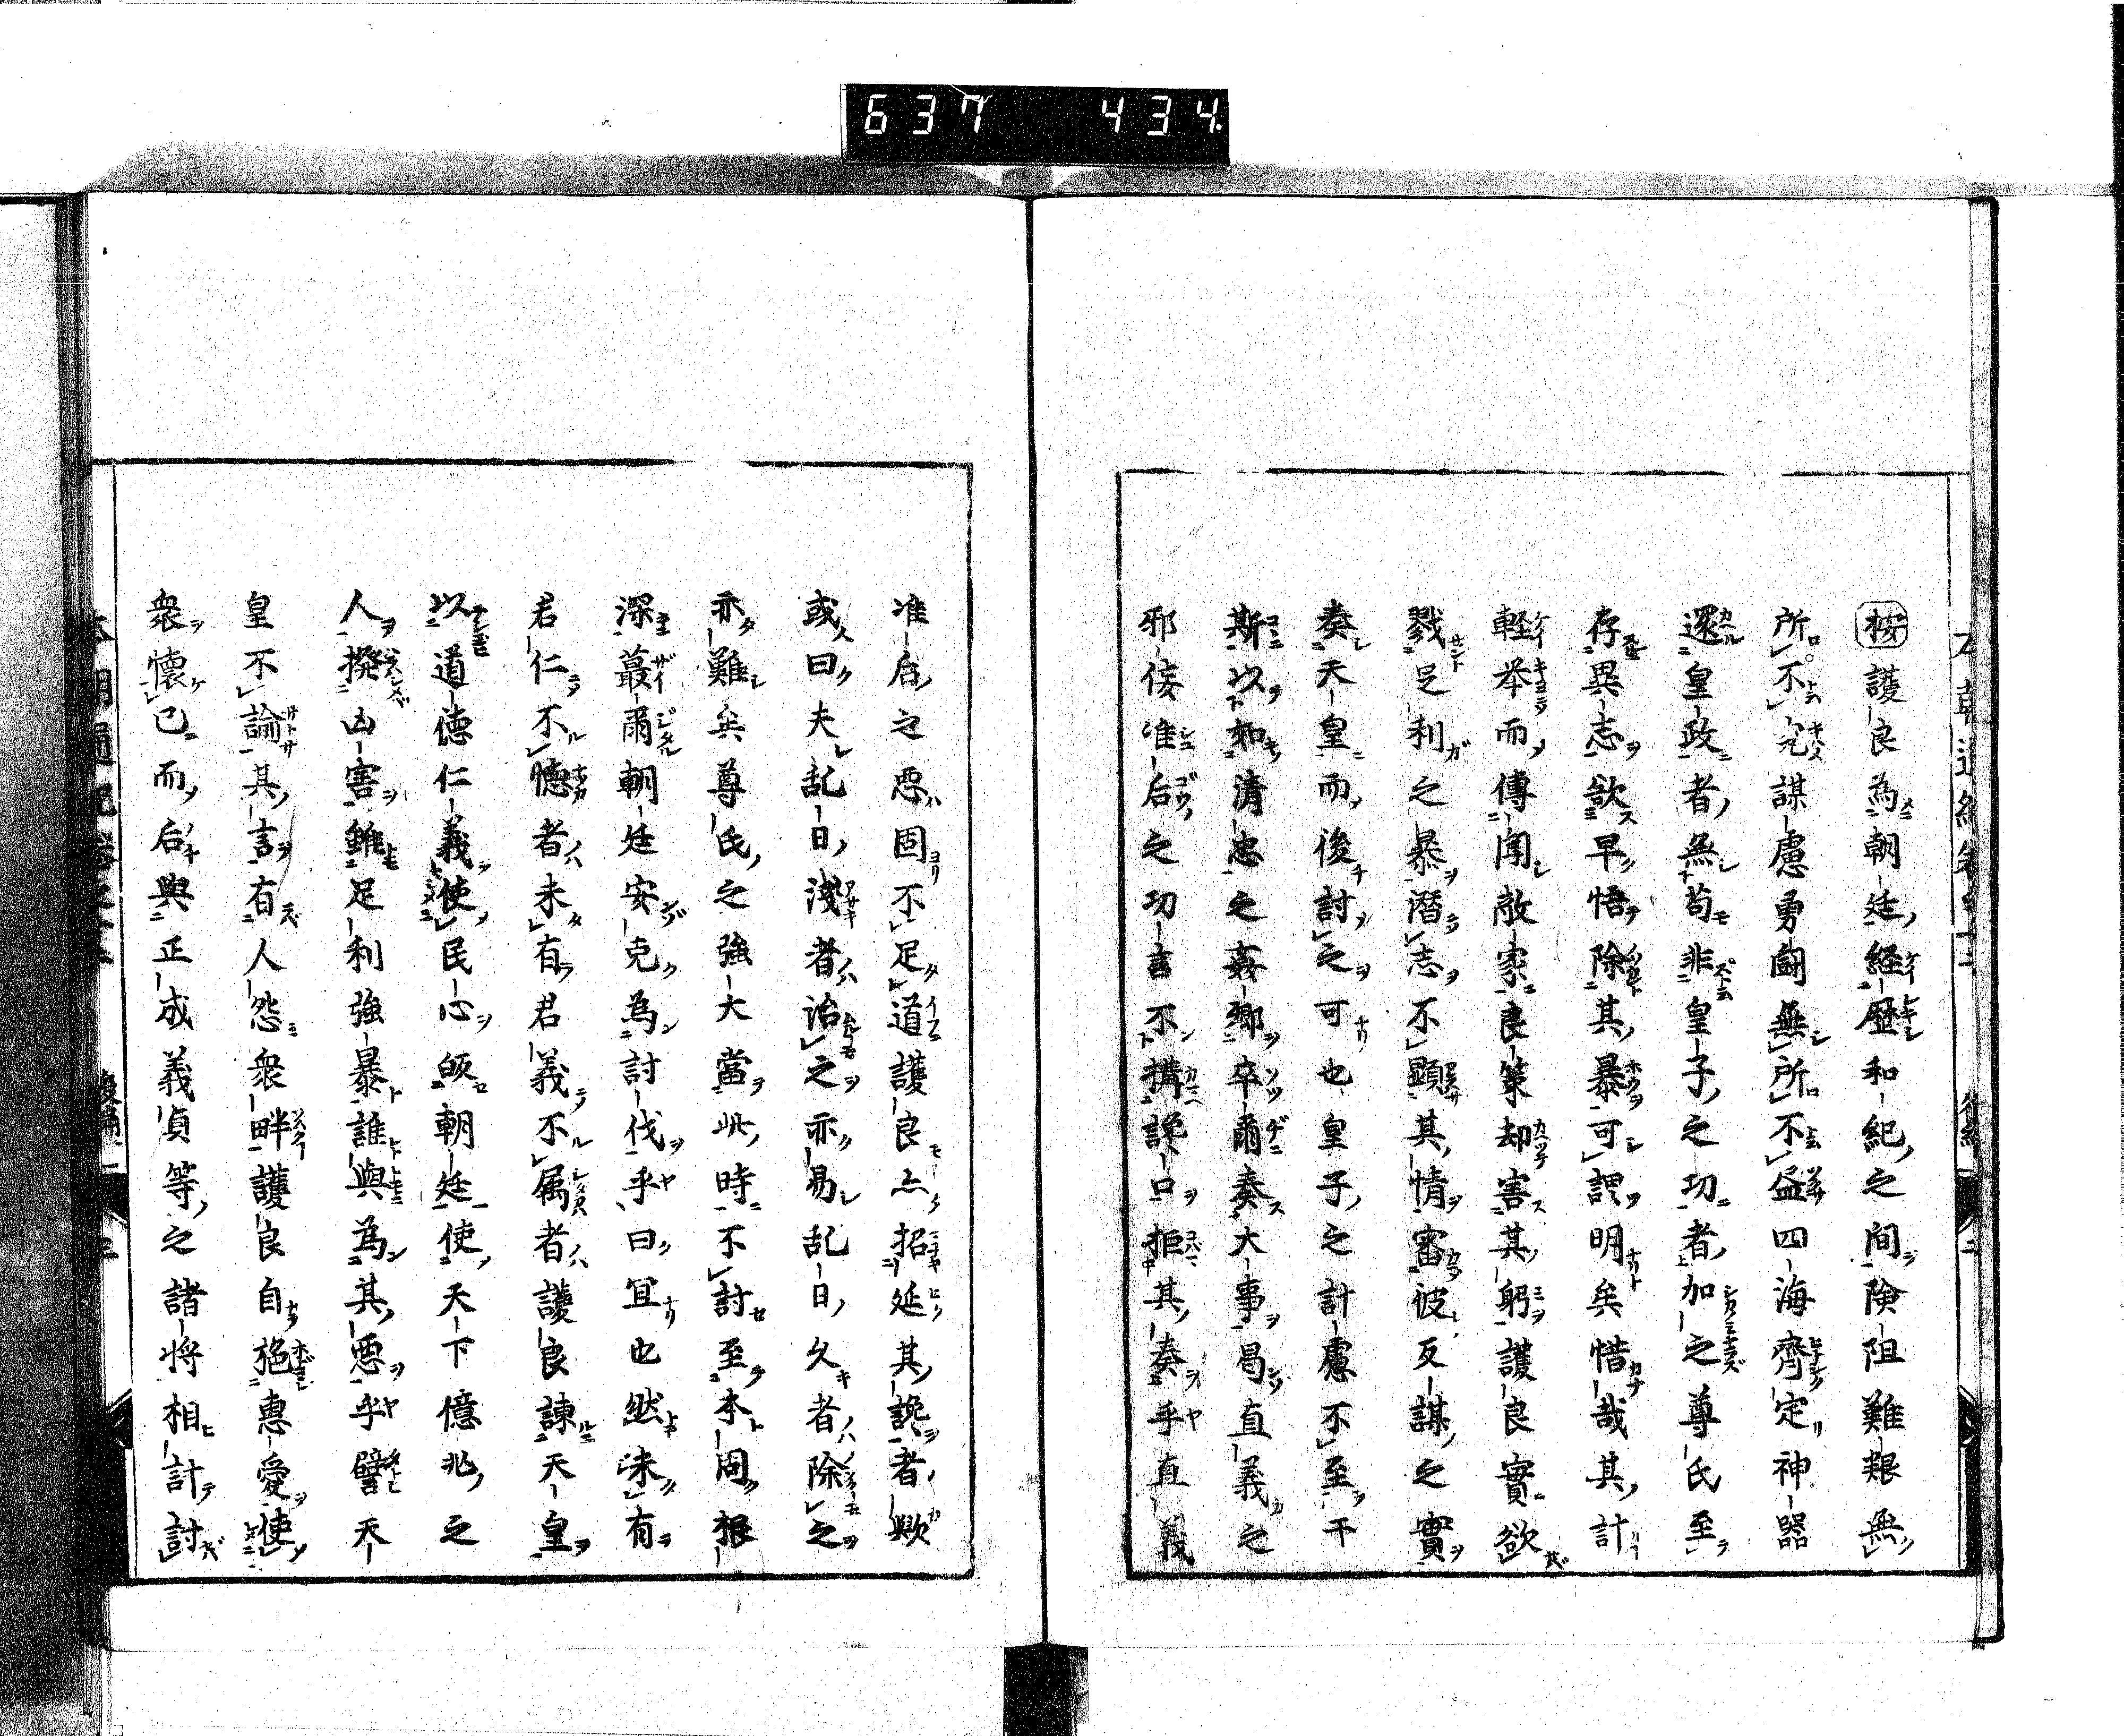 637 434
按護良為朝廷経歴和紀之間険阻難艱無
所不究謀慮勇闘無所不益四海齊定神器
還皇政者無苟非皇子之功者加之尊氏至
存異志欲早悟除其暴可謂明矣惜哉其計
軽挙而傳聞敵家良策却害其躬護良實欲
戮足利之暴潜志不顕其情審彼反謀之實
奏天皇而後討之可也皇子之計慮不至于
斯以如清忠之姦卿卒爾奏大事曷直義之
邪侫准后之功言不搆讒口拒其奏乎直義
准后之悪固不足道護良亦招延其讒者歟
或曰夫乱日淺者治之亦易乱日久者除之
亦難矣尊氏之強大當此時不討至本固根
深蕞爾朝廷安克為討伐乎曰冝也然未有
君仁不懐者未有君義不属者護良諌天皇
以道德仁義使民心皈朝廷使天下億兆之
人撥凶害雖足利強暴誰與為其悪乎譬天
皇不諭其言有人怨衆畔護良自施惠愛使
衆懐己而后與正成義貞等之諸将相計討